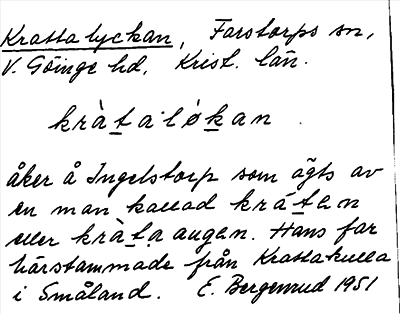 Krattalyckan, Farstorps sn,
V. Göinge hd, Krist. län.
kràtaløkan.
åker å Ingelstorp som ägts av
en man kallad kráten
eller kràtaaugen. Hans far
härstammade från Krattakulla
i Småland. E. Bergenrud 1951